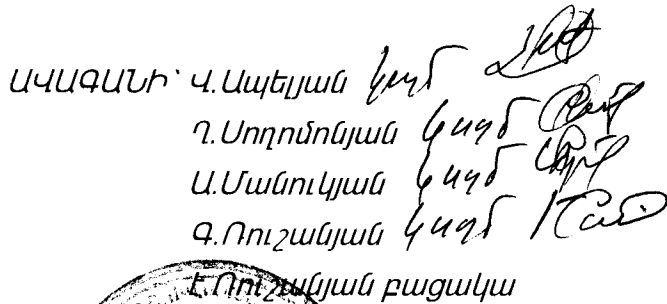 ԱՎԱԳԱՆԻ՝ Վ.Ապելյան կողմ
Ղ.Սողոմոնյան կողմ
Ա.Մանուկյան կողմ
Գ.Ռուշանյան կողմ
Է.Ռուշանյան բացակա